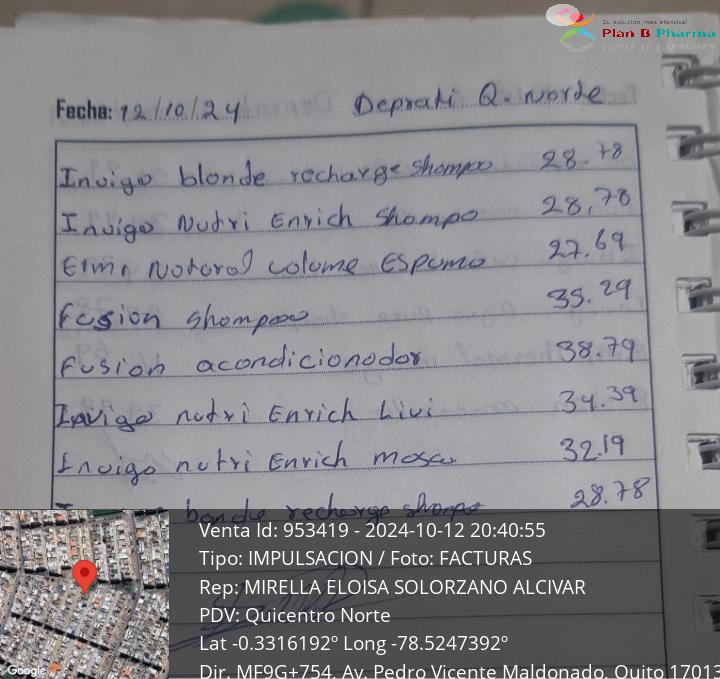 Su solucion mas efectiva!
Plan B Pharma
Fecha: 12/10/24 Deprati Q. Norte
Invigo blonde recharge shampo 28.78
Invigo Nutri Enrich Shampo 28,78
Eimi Natural volume Espuma 27.69
Fusion shampoo 35.29
Fusion acondicionador 38.79
Invigo nutri Enrich Livi 34.39
Invigo nutri Enrich masca 32.19
recharge shampo 28.78
Venta Id: 953419 - 2024-10-12 20:40:55
Tipo: IMPULSACION / Foto: FACTURAS
Rep: MIRELLA ELOISA SOLORZANO ALCIVAR
PDV: Quicentro Norte
Lat -0.3316192° Long -78.5247392°
Dir. MF9G+754, Av. Pedro Vicente Maldonado, Quito 17013
Google